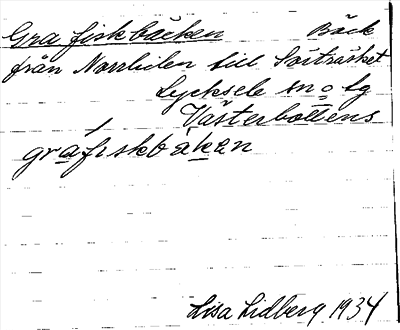 Gra fiskbäcken Bäck
från Norrhilen till Sörträsket
Lycksele sn o lg
Västerbottens
gráfiskbäkan
Lisa Lidberg 1934